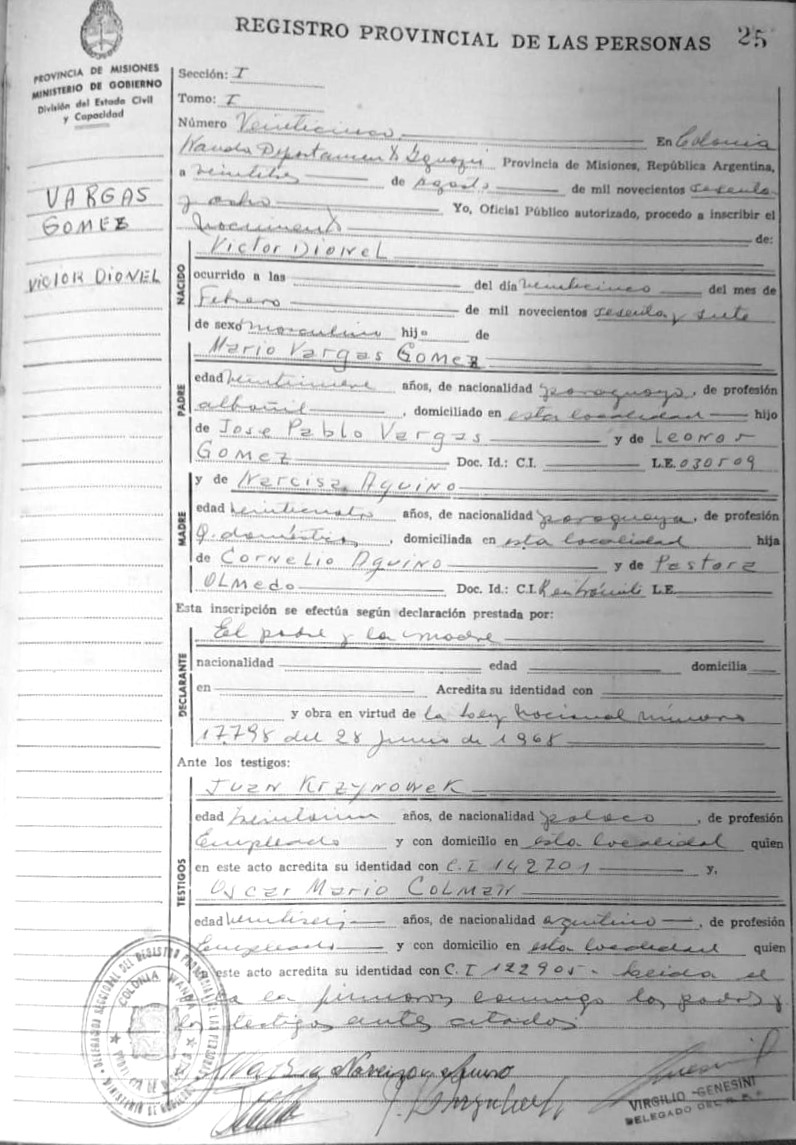 REGISTRO PROVINCIAL DE LAS PERSONAS 25
PROVINCIA DE MISIONES
MINISTERIO DE GOBIERNO
División del Estado Civil
y Capacidad
VARGAS
GOMEZ
VICTOR DIONEL
Sección: I
Tomo: I
Número Veinticinco En Colonia
Wanda Departamento Iguazú Provincia de Misiones, República Argentina,
a veintitres de agosto de mil novecientos sesenta
y ocho Yo, Oficial Público autorizado, procedo a inscribir el
nacimiento de:
NACIDO
Victor Dionel
ocurrido a las del día veinticinco del mes de
Febrero de mil novecientos sesenta y siete
de sexo masculino hijo de
PADRE
Mario Vargas Gomez
edad veintinueve años, de nacionalidad paraguaya, de profesión
albañil, domiciliado en esta localidad hijo
de Jose Pablo Vargas y de Leonor
Gomez Doc. Id.: C.I. L.E. 030509
MADRE
y de Narcisa Aquino
edad veinticuatro años, de nacionalidad paraguaya, de profesión
Q. domésticos, domiciliada en esta localidad hija
de Cornelio Aquino y de Pastora
Olmedo Doc. Id.: C.I. L.E.
Esta inscripción se efectúa según declaración prestada por:
DECLARANTE
El padre y la madre
nacionalidad edad domicilia
en Acredita su identidad con
y obra en virtud de la Ley Nacional número
17.798 del 28 Junio de 1968
Ante los testigos:
TESTIGOS
Juan Krzynowek
edad años, de nacionalidad polaco, de profesión
Empleado y con domicilio en esta localidad quien
en este acto acredita su identidad con C.I 142701 y,
Oscar Mario Colman
edad veintiseis años, de nacionalidad argentino, de profesión
Empleado y con domicilio en esta localidad quien
este acto acredita su identidad con C.I 122905. Leida el
la firmaron conmigo los padres y
los testigos ante citados
VIRGILIO GENESINI
DELEGADO DEL R.P.